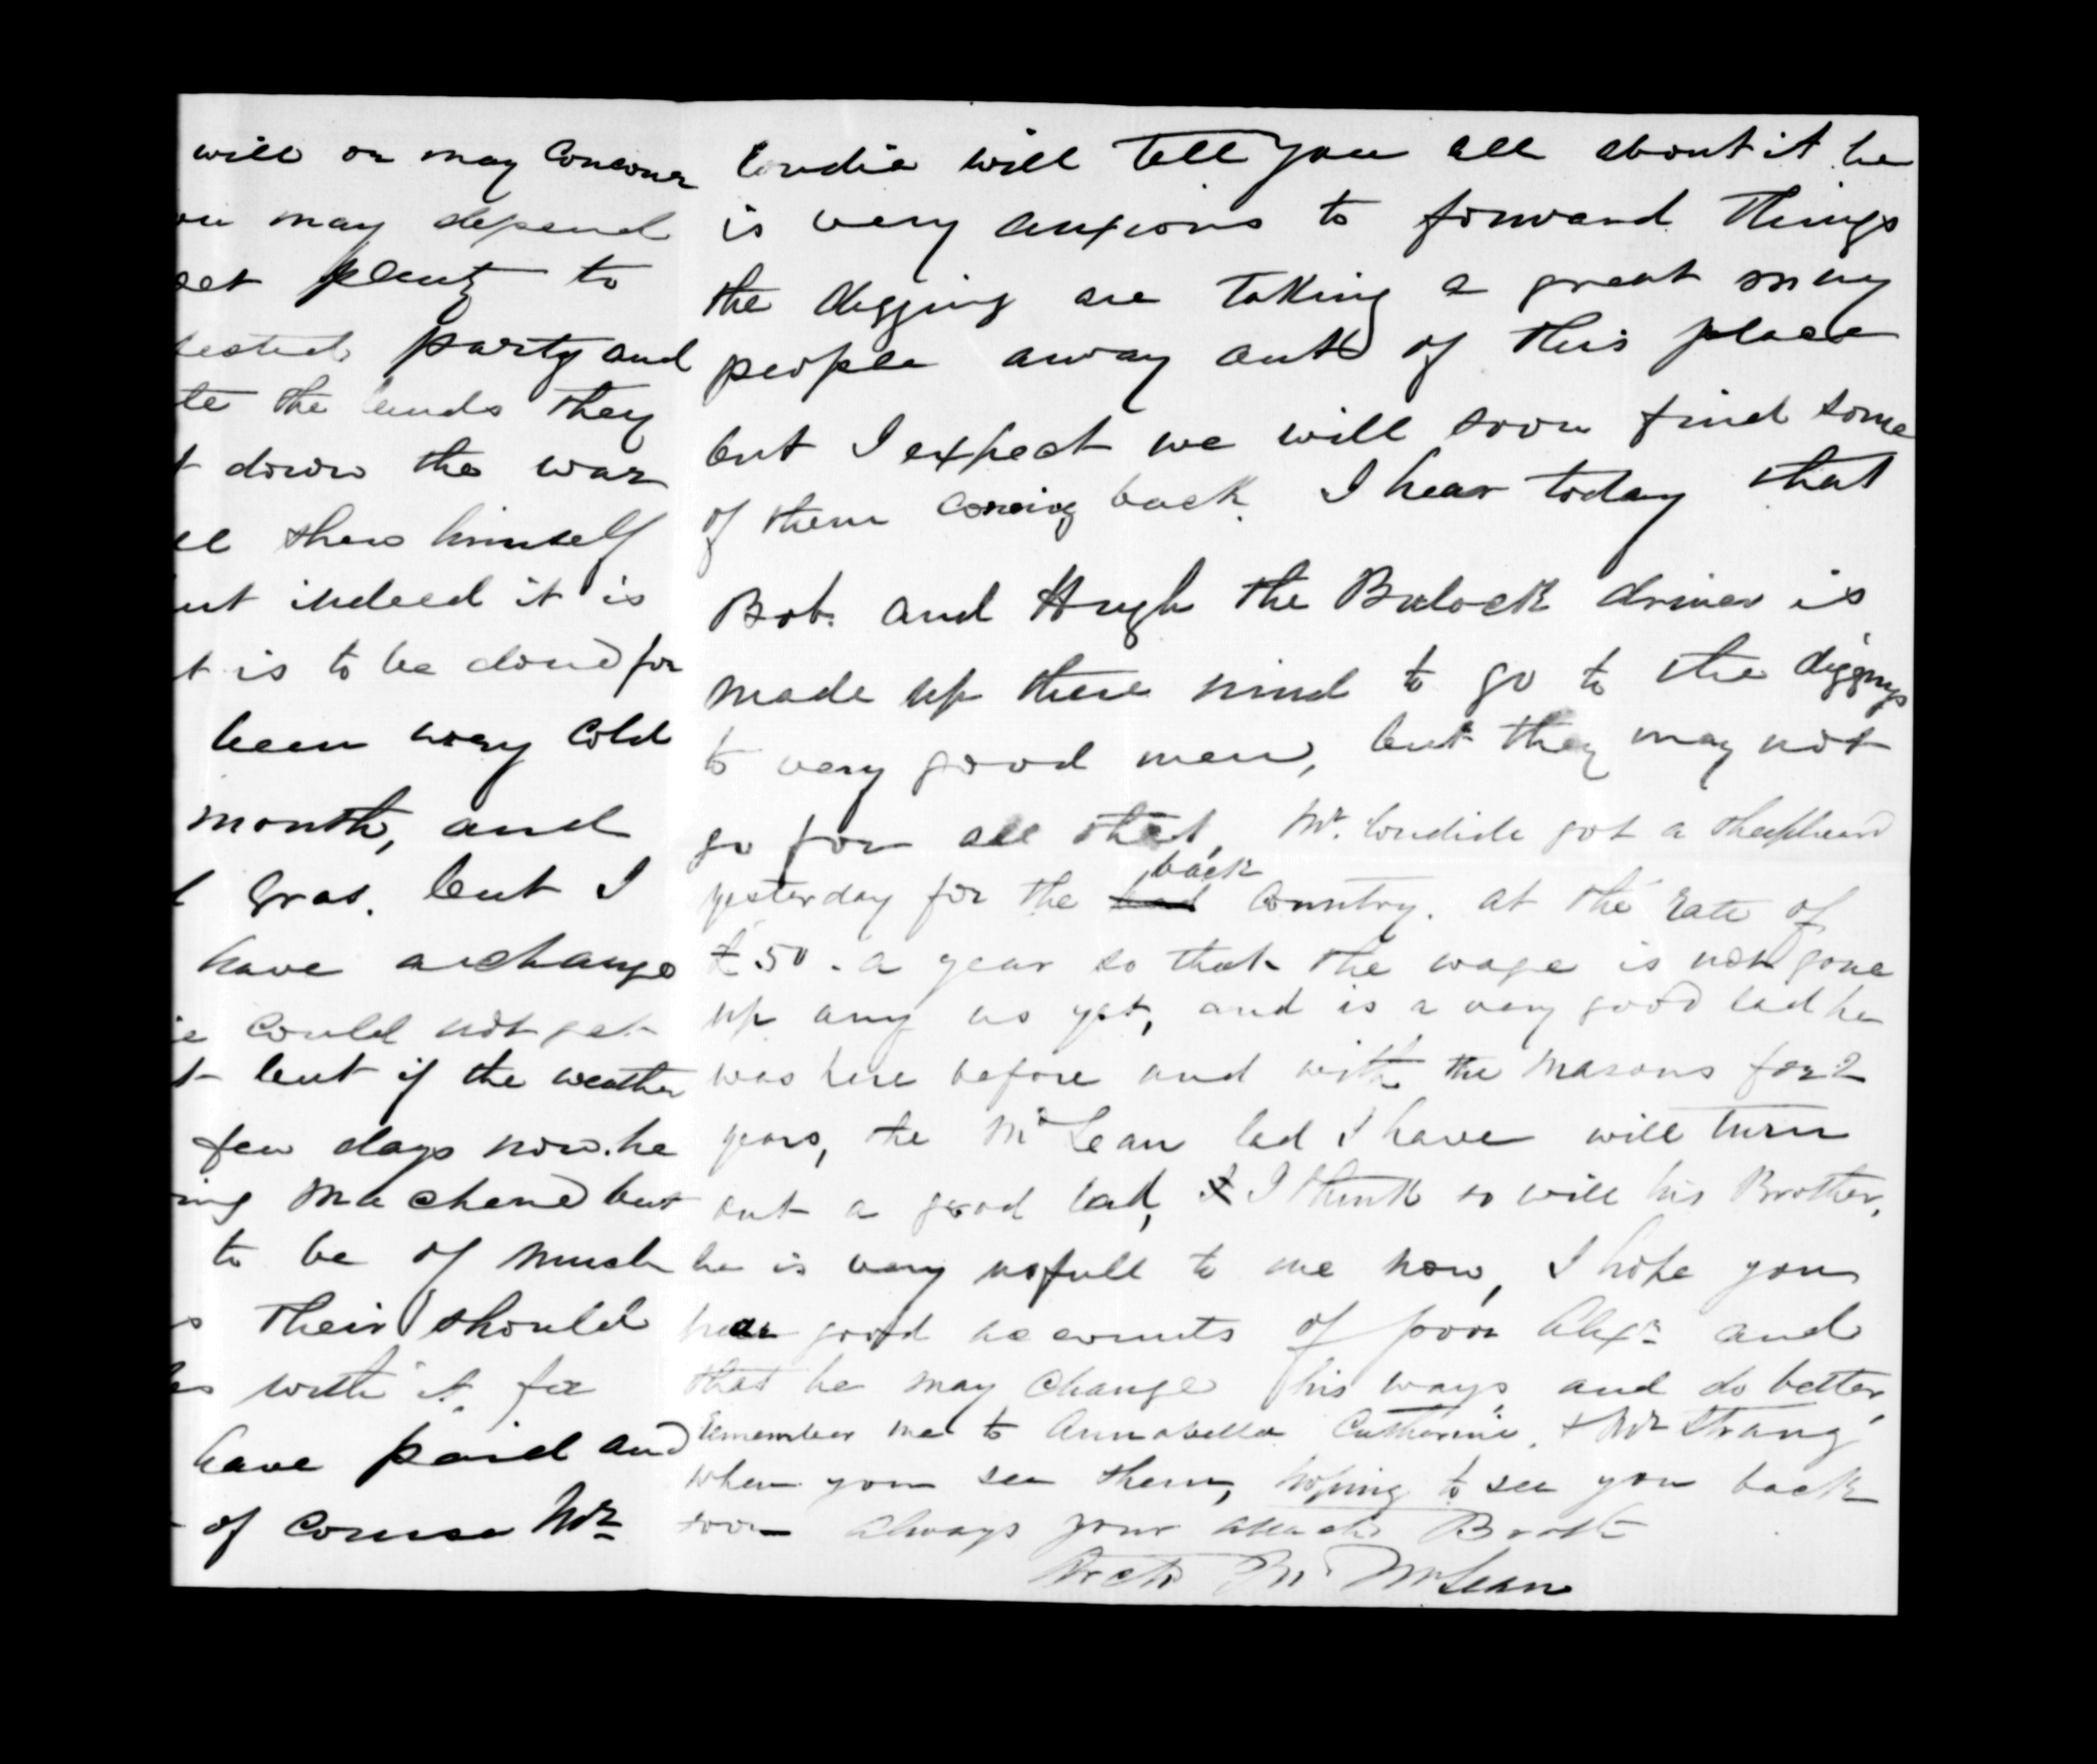 will or may Concour
ou may depend
get plenty to
rested party and
te the lands they
t down the war
ll shew himself
ut indeed it is
t is to be done for
been very Cold
month, and
d Gras. but I
have a change
e Could not get
t but if the weather
few days now. he
ing Machene but
to be of much
s their should
les with it. for
have paid and
of Course Mr
Condie will Tell you all about it he
is very anxious to forward things
the digging are Taking a great many
people away out of this place
but I expect we will soon find some
of them coming back. I hear today that
Bob. and Hugh the Bulock driver is
made up there mind to go to the diggings
to very good men, but they may not
go for all that, Mr. Condie got a shepherd
yesterday for the back Country. at the rate of
£50. a year so that the wage is not gone
up any as yet, and is a very good lad he
was here before and with the masons for 2
years, the McLean lad I have will turn
out a good lad, & I think so will his Brother,
he is very usfull to me now, I hope you
hear good accounts of poor Alexr and
that he may Change his ways, and do better,
Remember me to Annabella Catherine, & Mr Strang
when you see them, hoping to see you back
soon always your attach Broth
Archd McLean